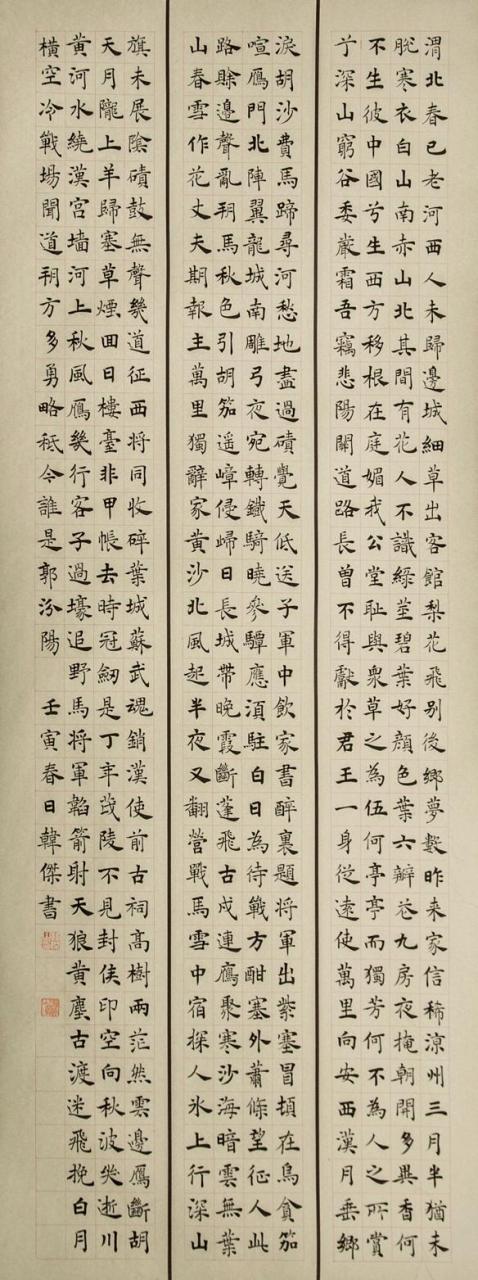 渭北春已老河西人未歸邊城細草出客館梨花飛别後鄉夢數昨来家信稀涼州三月半猶未
脫寒衣白山南赤山北其間有花人不識綠莖碧葉好顏色葉六瓣花九房夜掩朝開多異香何
不生彼中國兮生西方移根在庭媚我公堂耻與衆草之為伍何亭亭而獨芳何不為人之所賞
兮深山窮谷委嚴霜吾竊悲陽関道路長曽不得獻於君王一身從遠使萬里向安西漢月垂鄉
淚胡沙費馬蹄尋河愁地盡過磧覺天低送子軍中飲家書醉裏題將軍出紫塞冒頓在烏貪笳
喧鴈門北陣翼龍城南雕弓夜宛轉鐵騎曉參驔應湏駐白日為待戰方酣塞外蕭條望征人此
路賒邊聲亂朔馬秋色引胡笳遥嶂侵歸日長城帶晚霞斷蓬飛古戍連鴈聚寒沙海暗雲無葉
山春雪作花丈夫期報主萬里獨辭家黃沙北風起半夜又翻營戰馬雪中宿探人氷上行深山
旗未展陰磧鼓無聲幾道征西將同收碎葉城蘇武魂銷漢使前古祠高樹兩茫然雲邊鴈斷胡
天月隴上羊歸塞草煙回日樓臺非甲帳去時冠劒是丁年茂陵不見封侯印空向秋波哭逝川
黃河水繞漢宮墻河上秋風鴈幾行客子過壕追野馬將軍韜箭射天狼黃塵古渡迷飛挽白月
橫空冷戰場聞道朔方多勇略秪令誰是郭汾陽 壬寅春日韓傑書